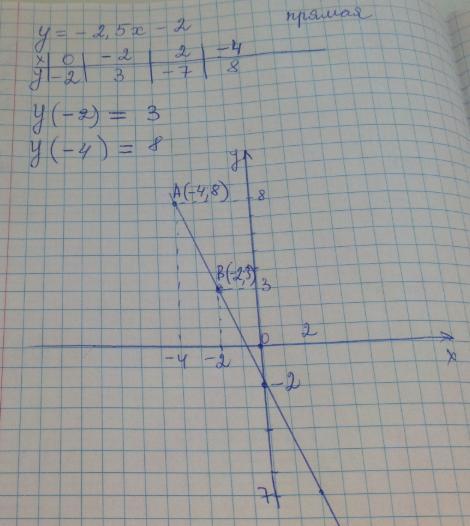 y = -2,5x - 2 прямая
x | 0 | -2 | 2 | -4
y | -2 | 3 | -7 | 8
y(-2) = 3
y(-4) = 8
y
A(-4,8) 8
B(-2,3) 3
0 2
-4 -2 x
-2
7